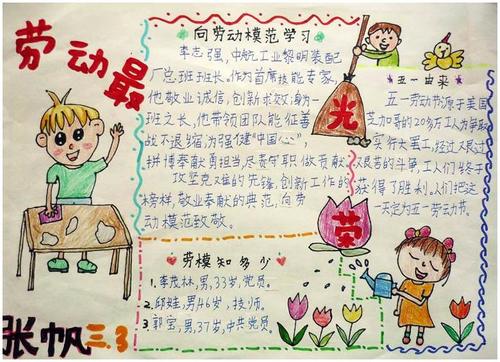 劳动最
光
荣
向劳动模范学习
李志强,中航工业黎明装配
厂总班班长。作为首席技能专家,
他敬业诚信,创新求效;身为一
班之长,他带领团队能征善
战不退缩,为强健“中国心”,
拼博奉献勇担当,尽责守职做贡献
攻坚克难的先锋,创新工作的
榜样,敬业奉献的典范,向劳
动模范致敬。
五一由来
五一劳动节源于美国
芝加哥的20多万工人为争取
实行大罢工,经过又艰过
艰苦的斗争,工人们终于
获得了胜利。人们把这
一天定为五一劳动节。
劳模知多少
1.李茂林,男,33岁,党员。
2.邱娃,男46岁,技师。
3.郭宝,男,37岁,中共党员。
张帆 三.3